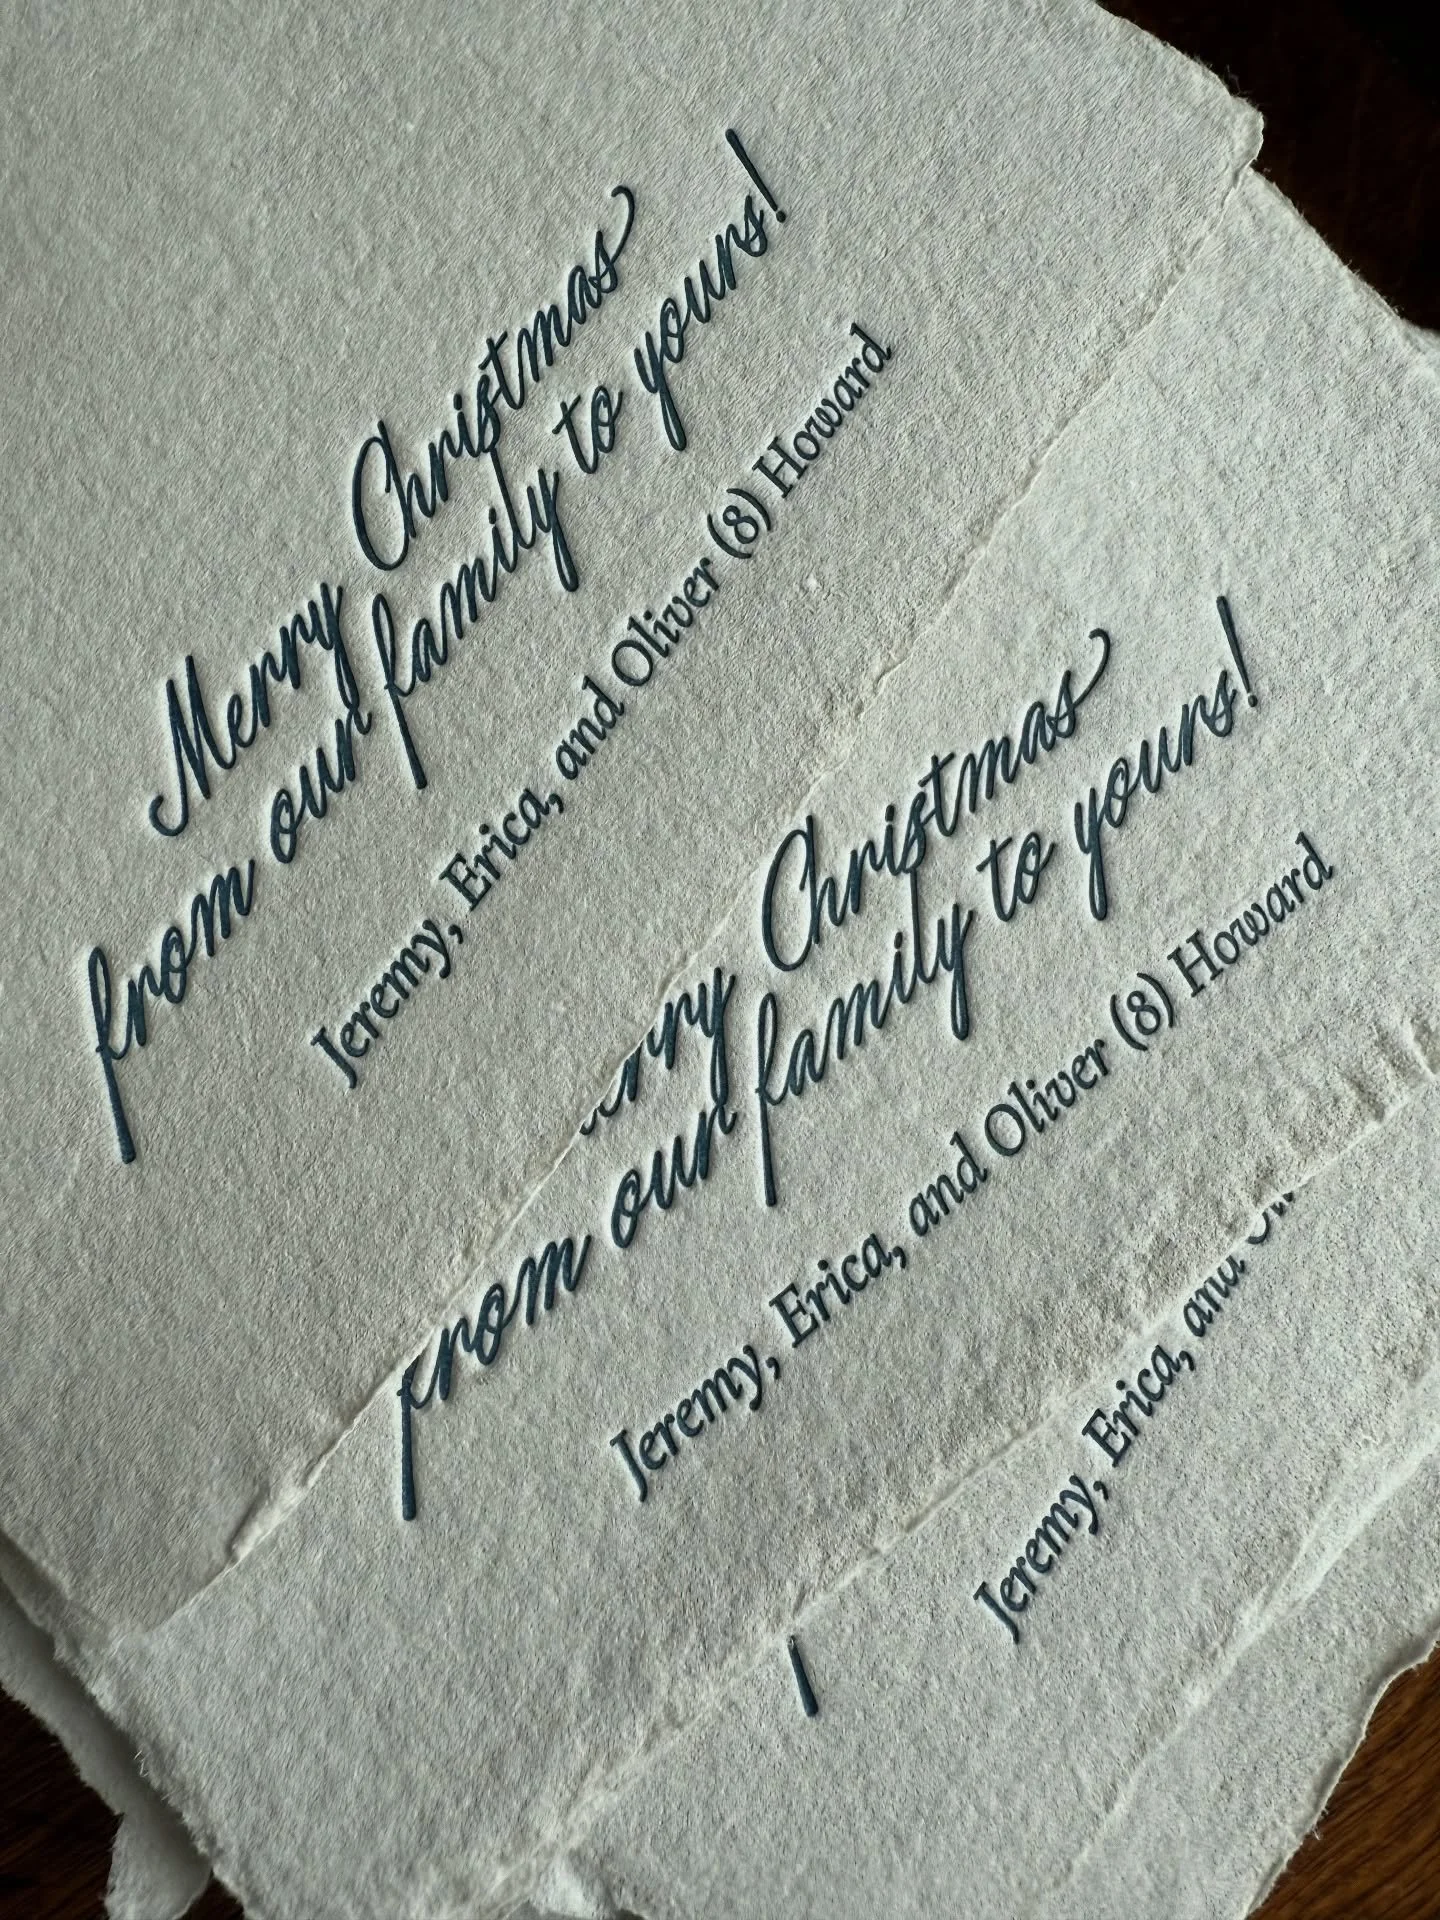 Merry Christmas
from our family to yours!
Jeremy, Erica, and Oliver (8) Howard
Christmas
from our family to yours!
Jeremy, Erica, and Oliver (8) Howard
Jeremy, Erica, and